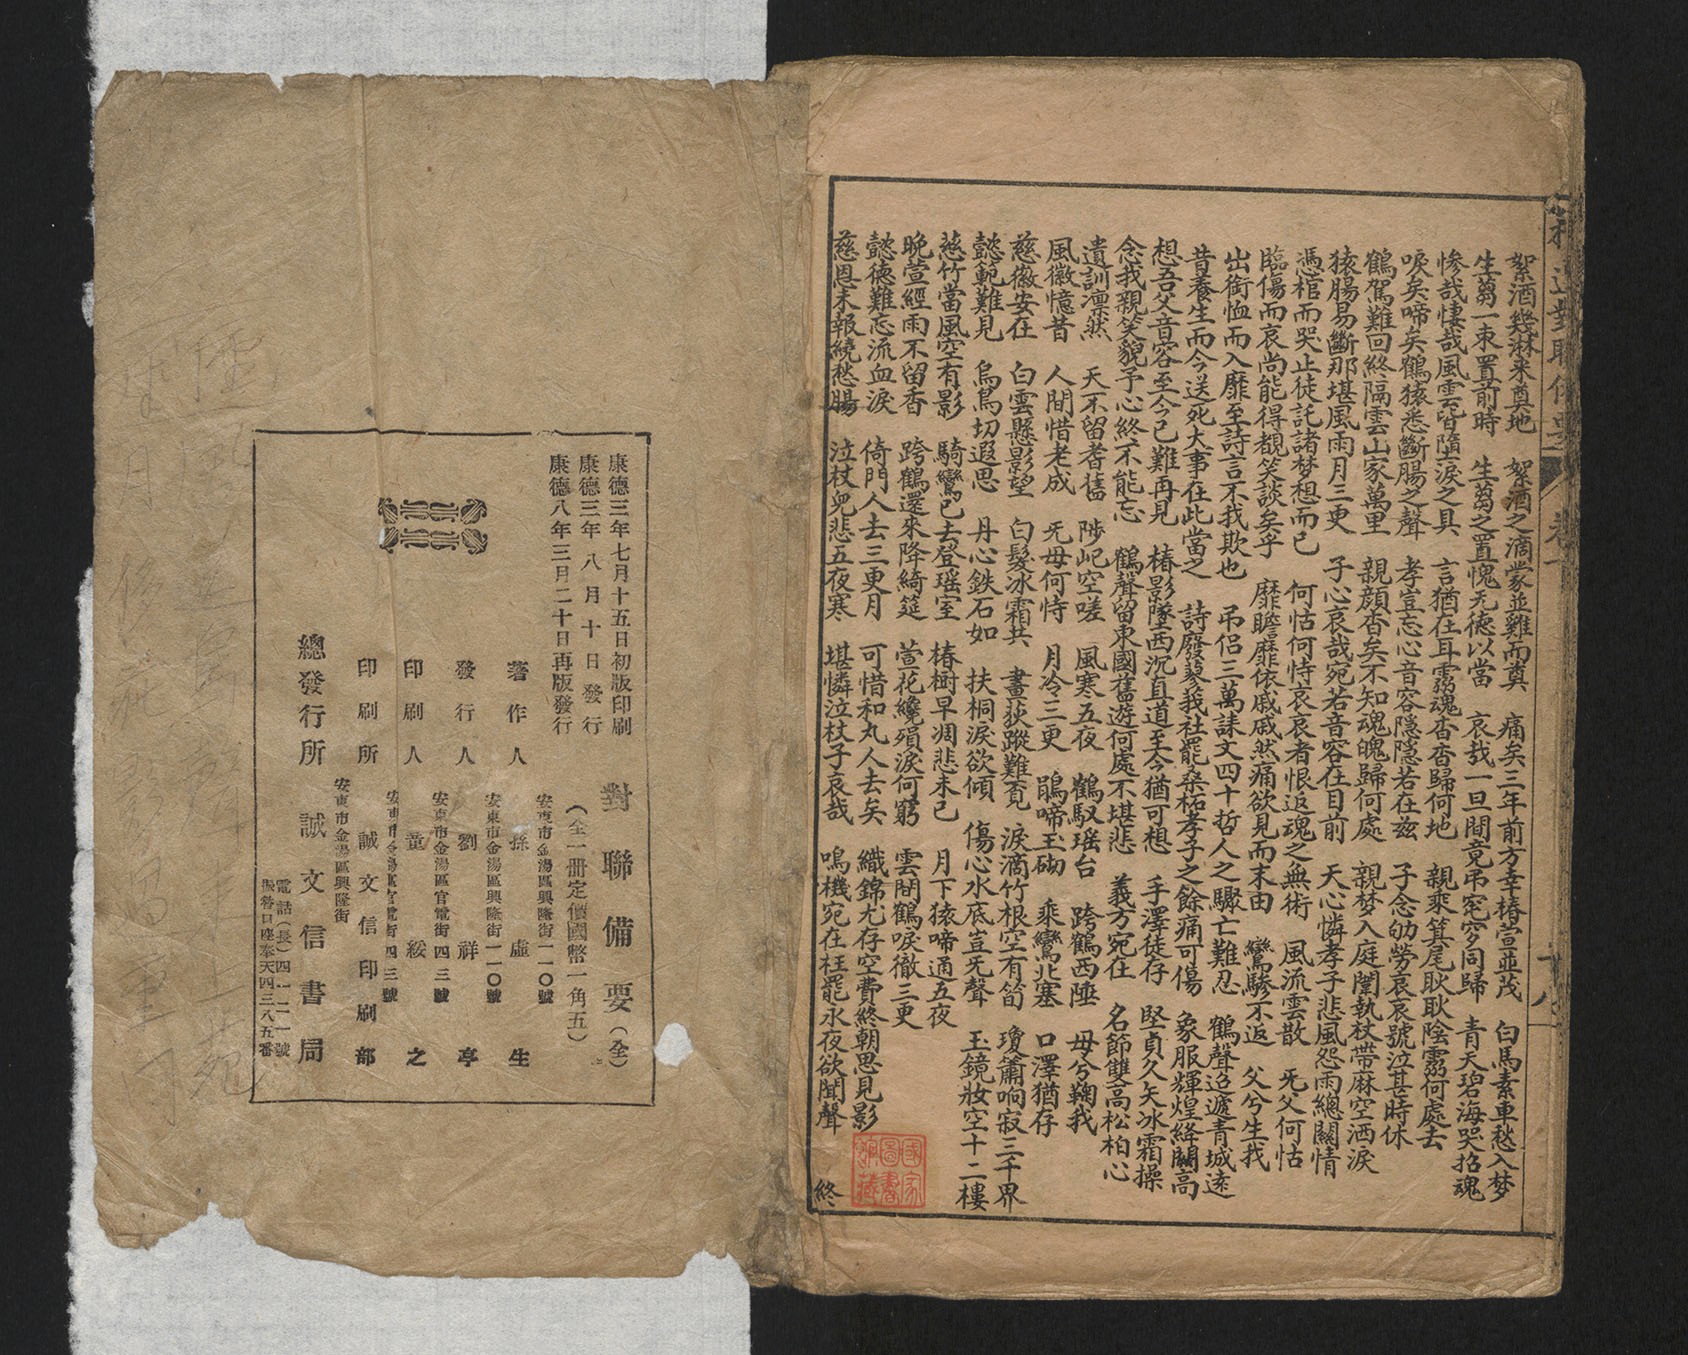 絮酒幾淋来奠地　絮酒之滴蒙並雞而奠　痛矣三年前方幸椿萱並茂　白馬素車愁入梦
生芻一束置前時　生芻之置愧无德以當　哀哉一旦間竟弔窀穸同歸　青天碧海哭招魂
惨哉悽哉風雲皆墮淚之具　言猶在耳靈魂杳杳歸何地　親乘箕尾耿耿陰靈何處去
唳矣啼矣鶴猿悉斷腸之聲　孝豈忘心音容隱隱若在兹　子念劬勞哀哀號泣甚時休
鶴駕難回終隔雲山家萬里　親顔杳矣不知魂魄歸何處　親梦入庭闈執杖帶麻空洒淚
猿腸易斷那堪風雨月三更　子心哀哉宛若音容在目前　天心憐孝子悲風怨雨總關情
憑棺而哭止徒託諸梦想而已　何怙何恃哀哀者恨返魂之無術　風流雲散　旡父何怙
臨傷而哀尚能得覩笑談矣乎　靡瞻靡依戚戚然痛欲見而末由　鸞驂不返　父兮生我
出銜恤而入靡至詩言不我欺也　弔侣三萬誄文四十哲人之驟亡難忍　鶴聲迢遞青城遠
昔養生而今送死大事在此當之　詩廢蓼莪社罷桑柘孝子之餘痛可傷　象服輝煌絳闕高
想吾父音容至今已難再見　椿影墜西沉直道至今猶可想　手澤徒存　堅貞久矢冰霜操
念我親笑貌予心終不能忘　鶴聲留東國舊遊何處不堪悲　義方宛在　名節雙高松柏心
遺訓凛然　天不留耆舊　陟屺空嗟　風寒五夜　鶴馭瑶台　跨鶴西陲　母兮鞠我
風徽憶昔　人間惜老成　旡母何恃　月冷三更　鵑啼玉砌　乘鸞北塞　口澤猶存
慈徽安在　白雲懸影望　白髮冰霜共　畫荻蹤難覓　淚滴竹根空有筍　瓊簫响寂三千界
懿範難見　烏鳥切遐思　丹心鉄石如　扶桐淚欲傾　傷心水底豈旡聲　玉鏡妝空十二樓
慈竹當風空有影　騎鸞已去登瑶室　椿樹早凋悲未已　月下猿啼通五夜
晚萱經雨不留香　跨鶴還來降綺筵　萱花纔殞淚何窮　雲間鶴唳徹三更
懿德難忘流血淚　倚門人去三更月　可惜和丸人去矣　織錦尤存空費終朝思見影
慈恩未報繞愁腸　泣杖兒悲五夜寒　堪憐泣杖子哀哉　鳴機宛在枉罷永夜欲聞聲　終
國家圖書館藏
康德三年七月十五日初版印刷
康德三年八月十日發行
康德八年三月二十日再版發行
對聯備要(全)
(全一册定價國幣一角五)
安東市金湯區興隆街一一〇號
著作人　孫虛生
安東市金湯區興隆街一一〇號
發行人　劉祥亭
安東市金湯區官電街四三號
印刷人　董綏之
安東市金湯區官電街四三號
印刷所　誠文信印刷部
安東市金湯區興隆街
總發行所　誠文信書局
電話(長)四一二一號
振替口座奉天四三八五番